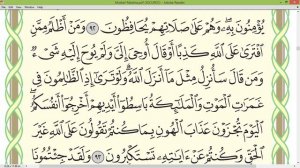 Mushaf Madina.pdf (SECURED) - Adobe Reader
يُؤْمِنُونَ بِهِۦ ۖ وَهُمْ عَلَىٰ صَلَاتِهِمْ يُحَافِظُونَ ٩٢ وَمَنْ أَظْلَمُ مِمَّنِ
ٱفْتَرَىٰ عَلَى ٱللَّهِ كَذِبًا أَوْ قَالَ أُوحِىَ إِلَىَّ وَلَمْ يُوحَ إِلَيْهِ شَىْءٌ
وَمَن قَالَ سَأُنزِلُ مِثْلَ مَآ أَنزَلَ ٱللَّهُ ۗ وَلَوْ تَرَىٰٓ إِذِ ٱلظَّٰلِمُونَ فِى
غَمَرَٰتِ ٱلْمَوْتِ وَٱلْمَلَٰٓئِكَةُ بَاسِطُوٓا۟ أَيْدِيهِمْ أَخْرِجُوٓا۟ أَنفُسَكُمُ ۖ
ٱلْيَوْمَ تُجْزَوْنَ عَذَابَ ٱلْهُونِ بِمَا كُنتُمْ تَقُولُونَ عَلَى ٱللَّهِ غَيْرَ
ٱلْحَقِّ وَكُنتُمْ عَنْ ءَايَٰتِهِۦ تَسْتَكْبِرُونَ ٩٣ وَلَقَدْ جِئْتُمُونَا